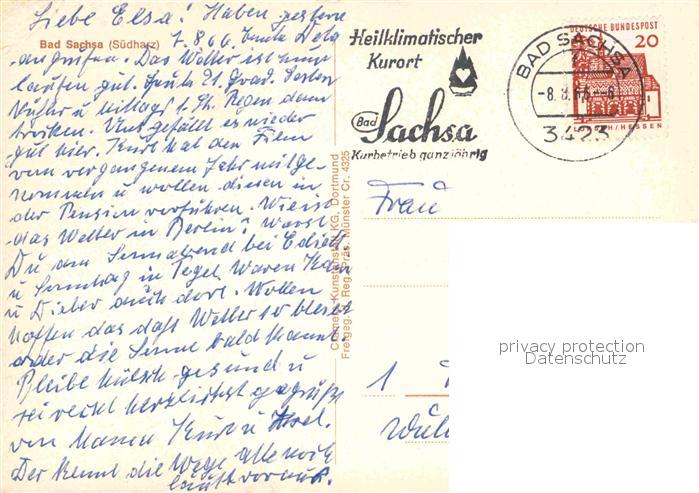 Liebe Elsa! Haben gestern
Bad Sachsa (Südharz)
7.8 66
Das Wetter ist nun
gut. Heute 21 Grad. Gestern
Regen dann
trocken. Uns gefällt es wieder
gut hier. Kurt hat den Film
vom vergangenem Jahr mitge-
nommen u wollen diesen in
der Pension vorführen. Wie ist
das Wetter in Berlin? Warst
Du am Sonnabend bei Edith
u Sonntag in Tegel. Waren
u Dieter auch dort. Wollen
hoffen das daß Wetter so bleibt
oder die Sonne bald kommt.
Bleibe hübsch gesund u
sei recht herzlichst gegrüßt
von Mama Kurt u
Der kennt die Wege alle noch
läuft voraus.
Cramers Kunstanstalt KG, Dortmund
Freigeg. d. Reg. Präs. Münster Cr. 4325
Heilklimatischer
Kurort
Bad Sachsa
Kurbetrieb ganzjährig
BAD SACHSA
-8.8.66-
3423
DEUTSCHE BUNDESPOST
20
LORSCH/HESSEN
Frau
1
privacy protection
Datenschutz